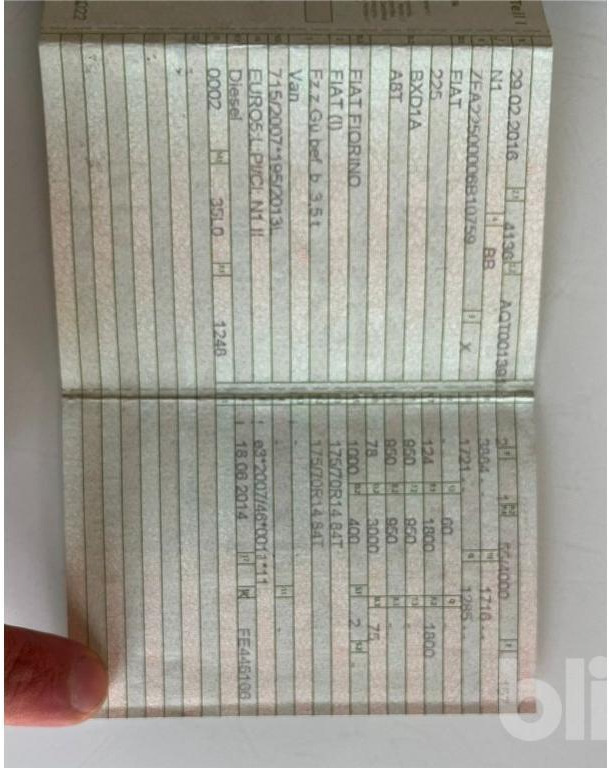 Teil I
29.02.2016 4136 AQT001391
N1 BB
ZFA22500006B10759 X
FIAT
225
BXD1A
A8T
FIAT FIORINO
FIAT (I)
Fz.z.Gü.bef. b. 3,5 t
Van
715/2007*195/2013L
EURO5;L;PI/CI; N1 II
Diesel
0002 35L0 1248
2 1 55/4000 157
3864 1716
1721 1285
- 60
124 1800 1800
950 950 -
950 950 -
78 3000 75
1000 400 2 -
175/70R14 84T
175/70R14 84T
e3*2007/46*0011*11
18.06.2014 K FE445100
oli